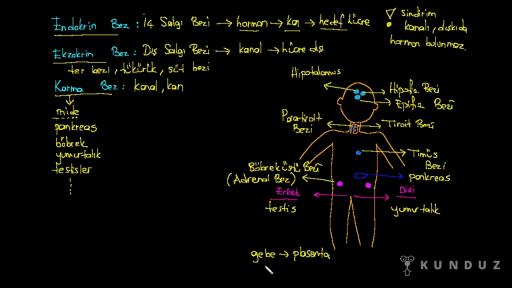 Endokrin Bez : İç Salgı Bezi → hormon → kan → hedef hücre
Ekzokrin Bez : Dış Salgı Bezi → kanal → hücre dışı
ter bezi, tükürük, süt bezi
Karma Bez : kanal, kan
mide
pankreas
böbrek
yumurtalık
testisler
sindirim
kanalı, dışkıda
hormon bulunmaz.
Hipotalamus
Hipofiz Bezi
Epifiz Bezi
Paratiroit
Bezi
Tiroit Bezi
Timüs
Bezi
Böbreküstü Bezi
(Adrenal Bez)
pankreas
Erkek
testis
Dişi
yumurtalık
gebe → plasenta
KUNDUZ